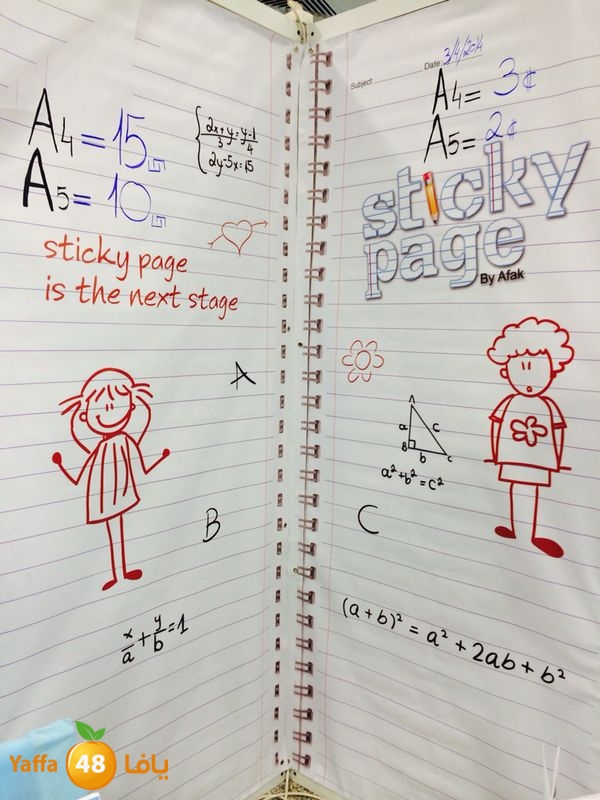 A4 = 15₪
A5 = 10₪
2x+y/3 = y-1/4
2y-5x=15
sticky page
is the next stage
A
B
x/a + y/b = 1
Subject
Date 3/4/2014
A4 = 3¢
A5 = 2¢
sticky
page
By Afak
A
a c
B b c
a² + b² = c²
C
(a+b)² = a² + 2ab + b²
Yaffa 48 يافا